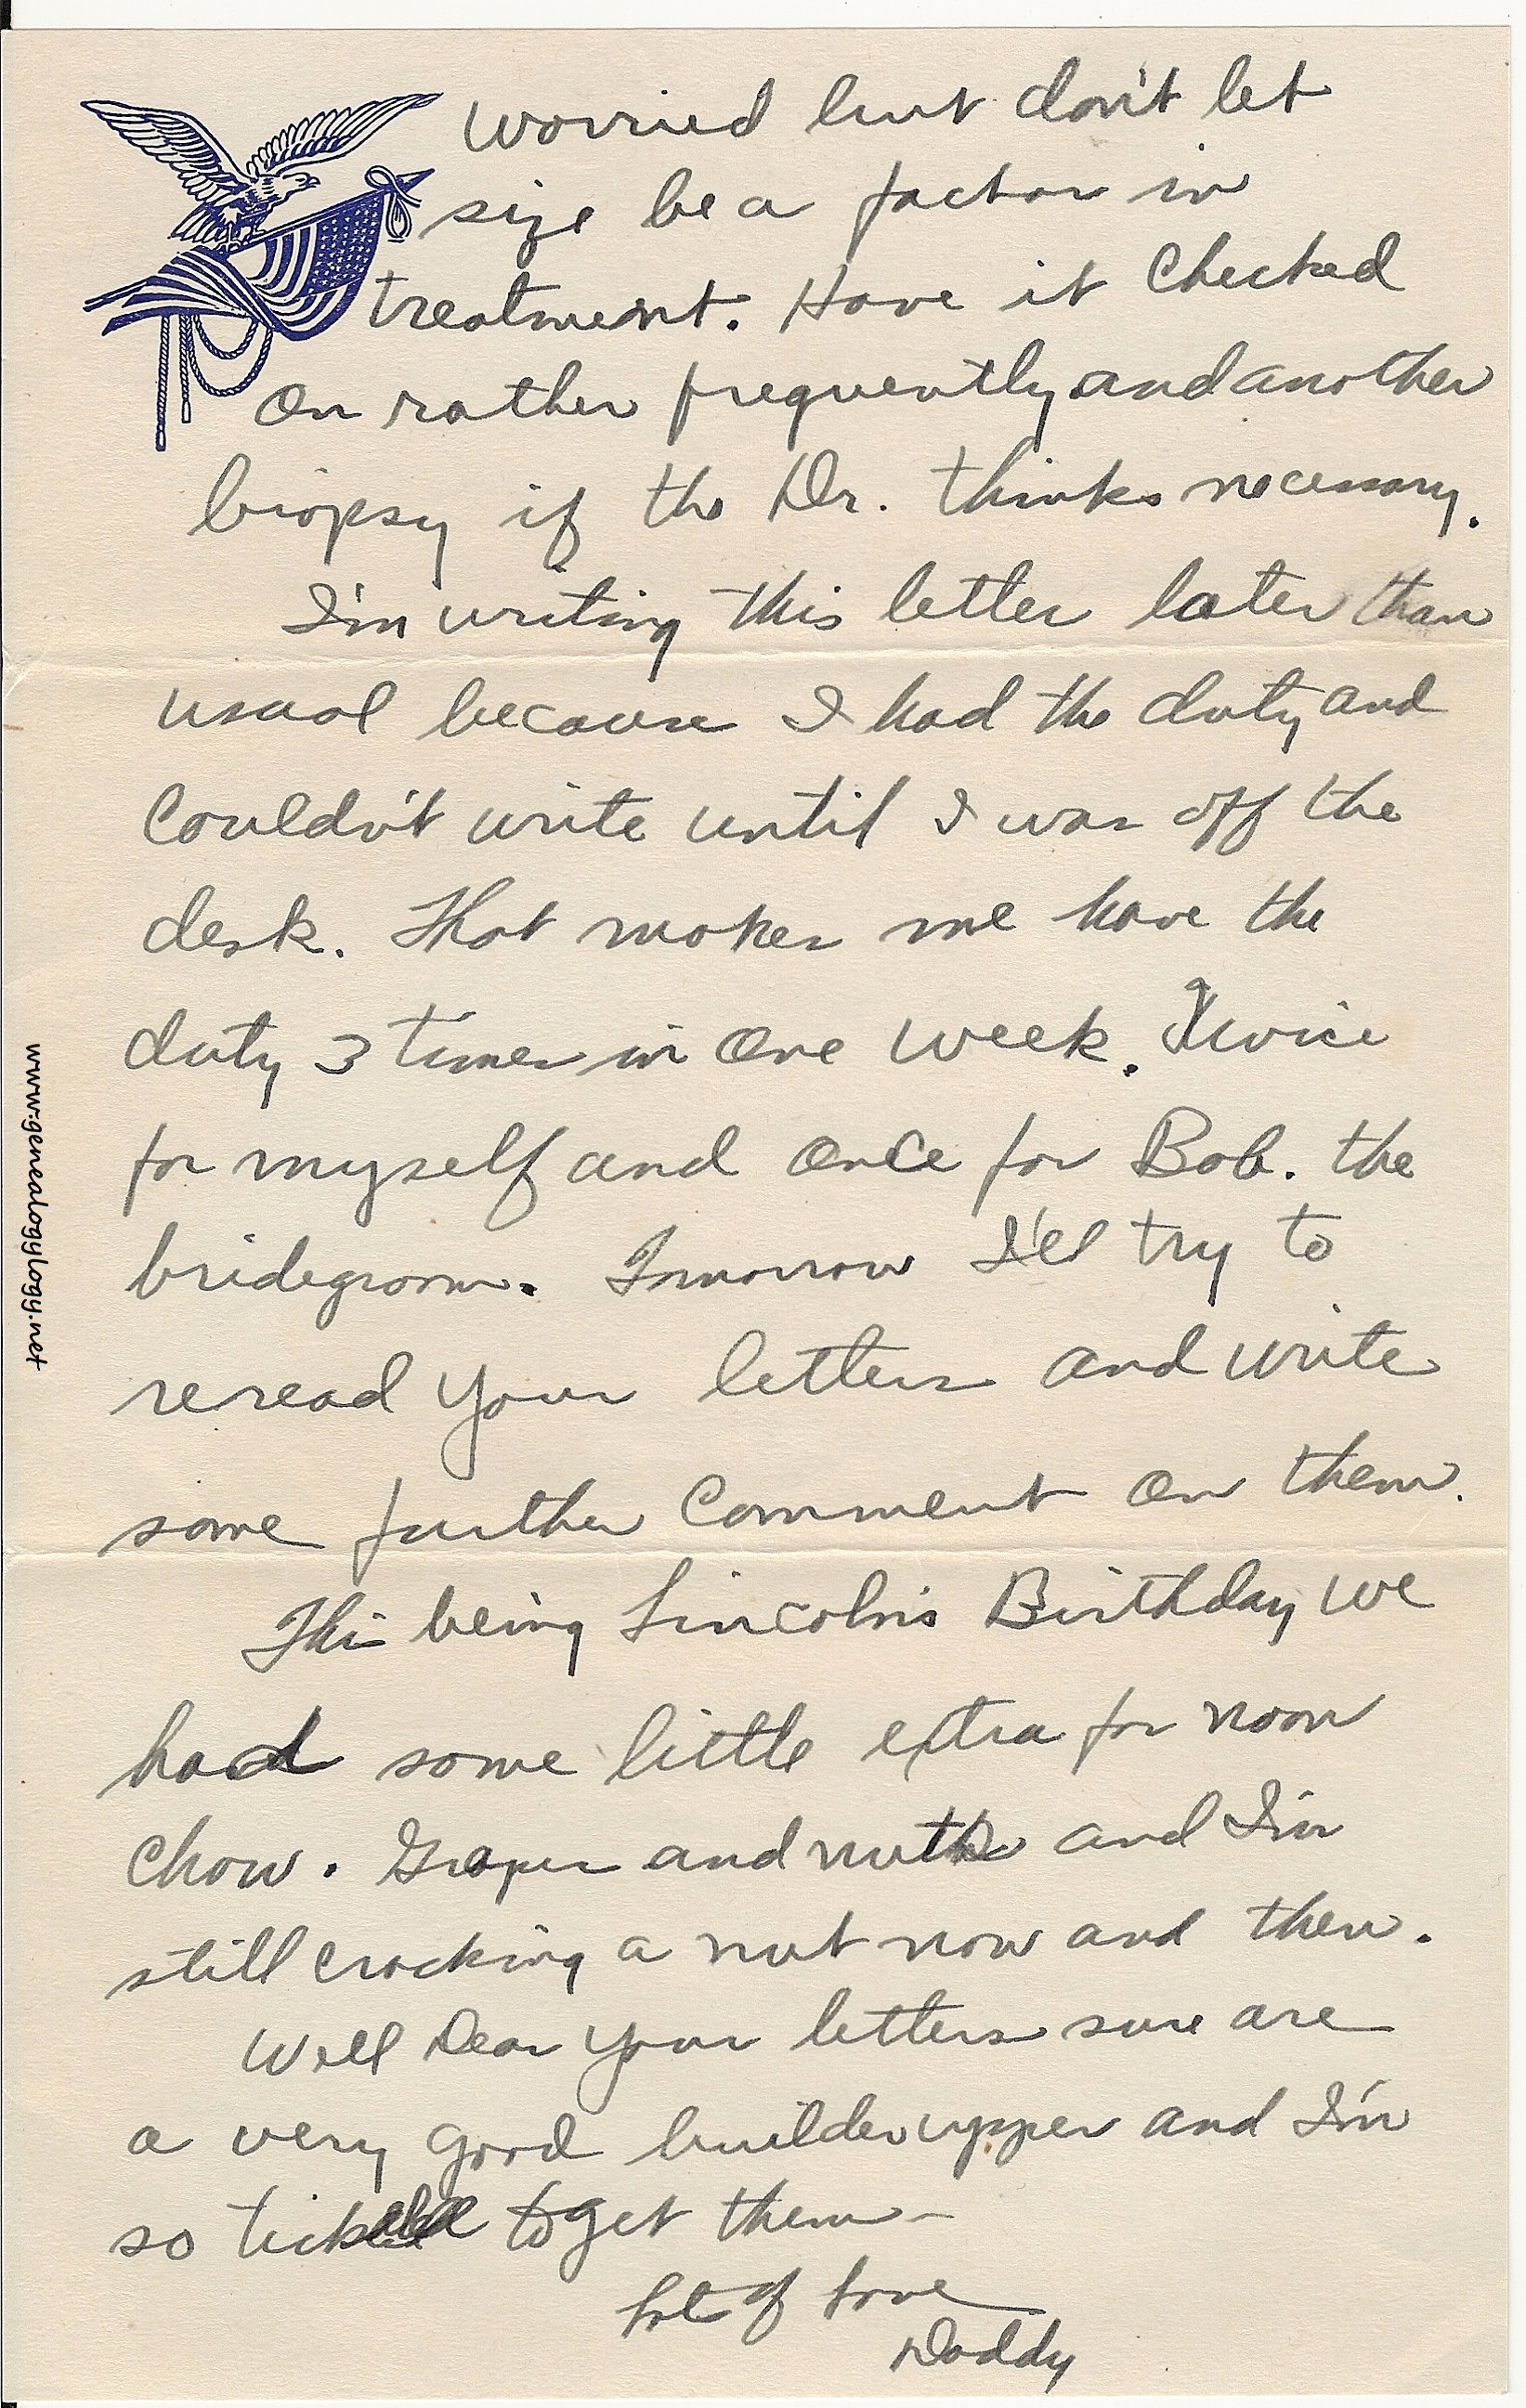 worried but don't let
size be a factor in
treatment. Have it checked
on rather frequently and another
biopsy if the Dr. thinks necessary.
I'm writing this letter later than
usual because I had the duty and
couldn't write until I was off the
desk. That makes me have the
duty 3 times in one week. Twice
for myself and once for Bob. the
bridegroom. Tomorrow I'll try to
reread your letters and write
some further comment on them.
This being Lincoln's Birthday we
had some little extra for noon
chow. Grapes and nuts and I'm
still cracking a nut now and then.
Well Dear your letters sure are
a very good builderupper and I'm
so tickled to get them -
Lots of love
Daddy
www.genealogylogy.net